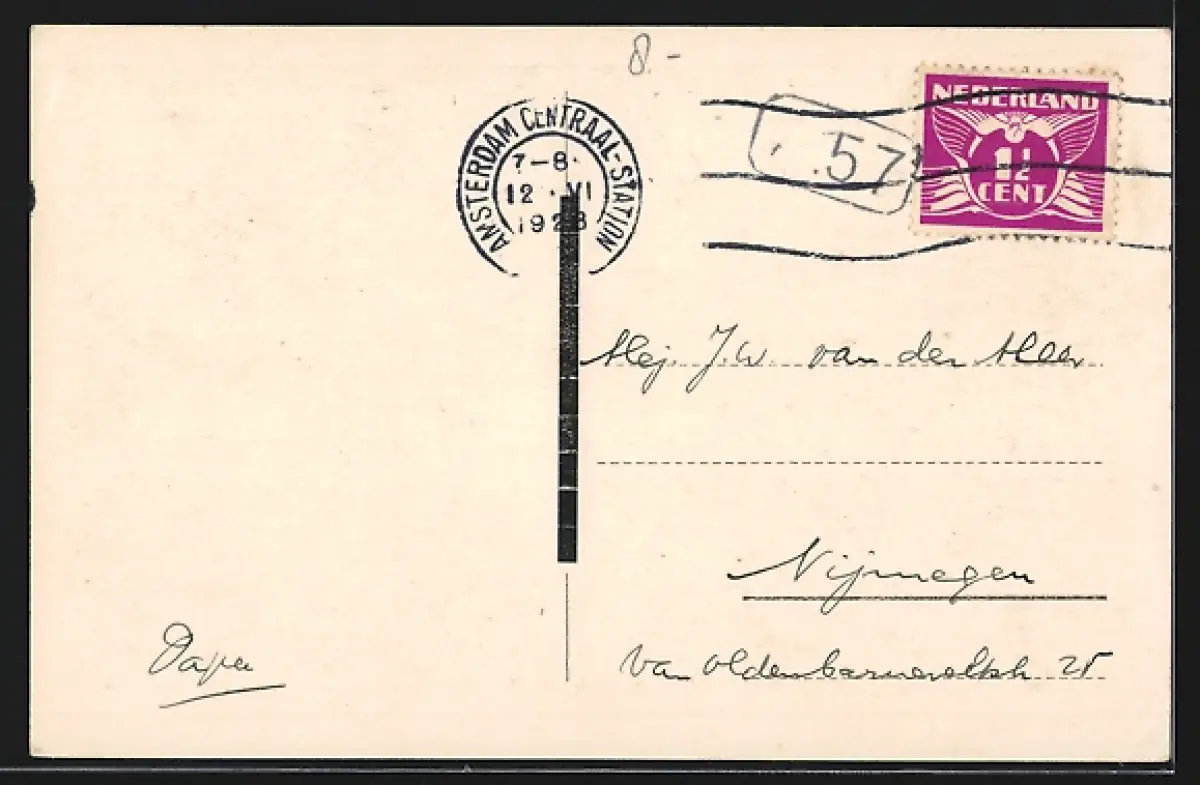 8.-
AMSTERDAM CENTRAAL-STATION
7-8
12 VI
1928
.57
NEDERLAND
7
1½
CENT
Mej. J.W. van der Meer
Nijmegen
Van Oldenbarneveltstr. 25
Papa